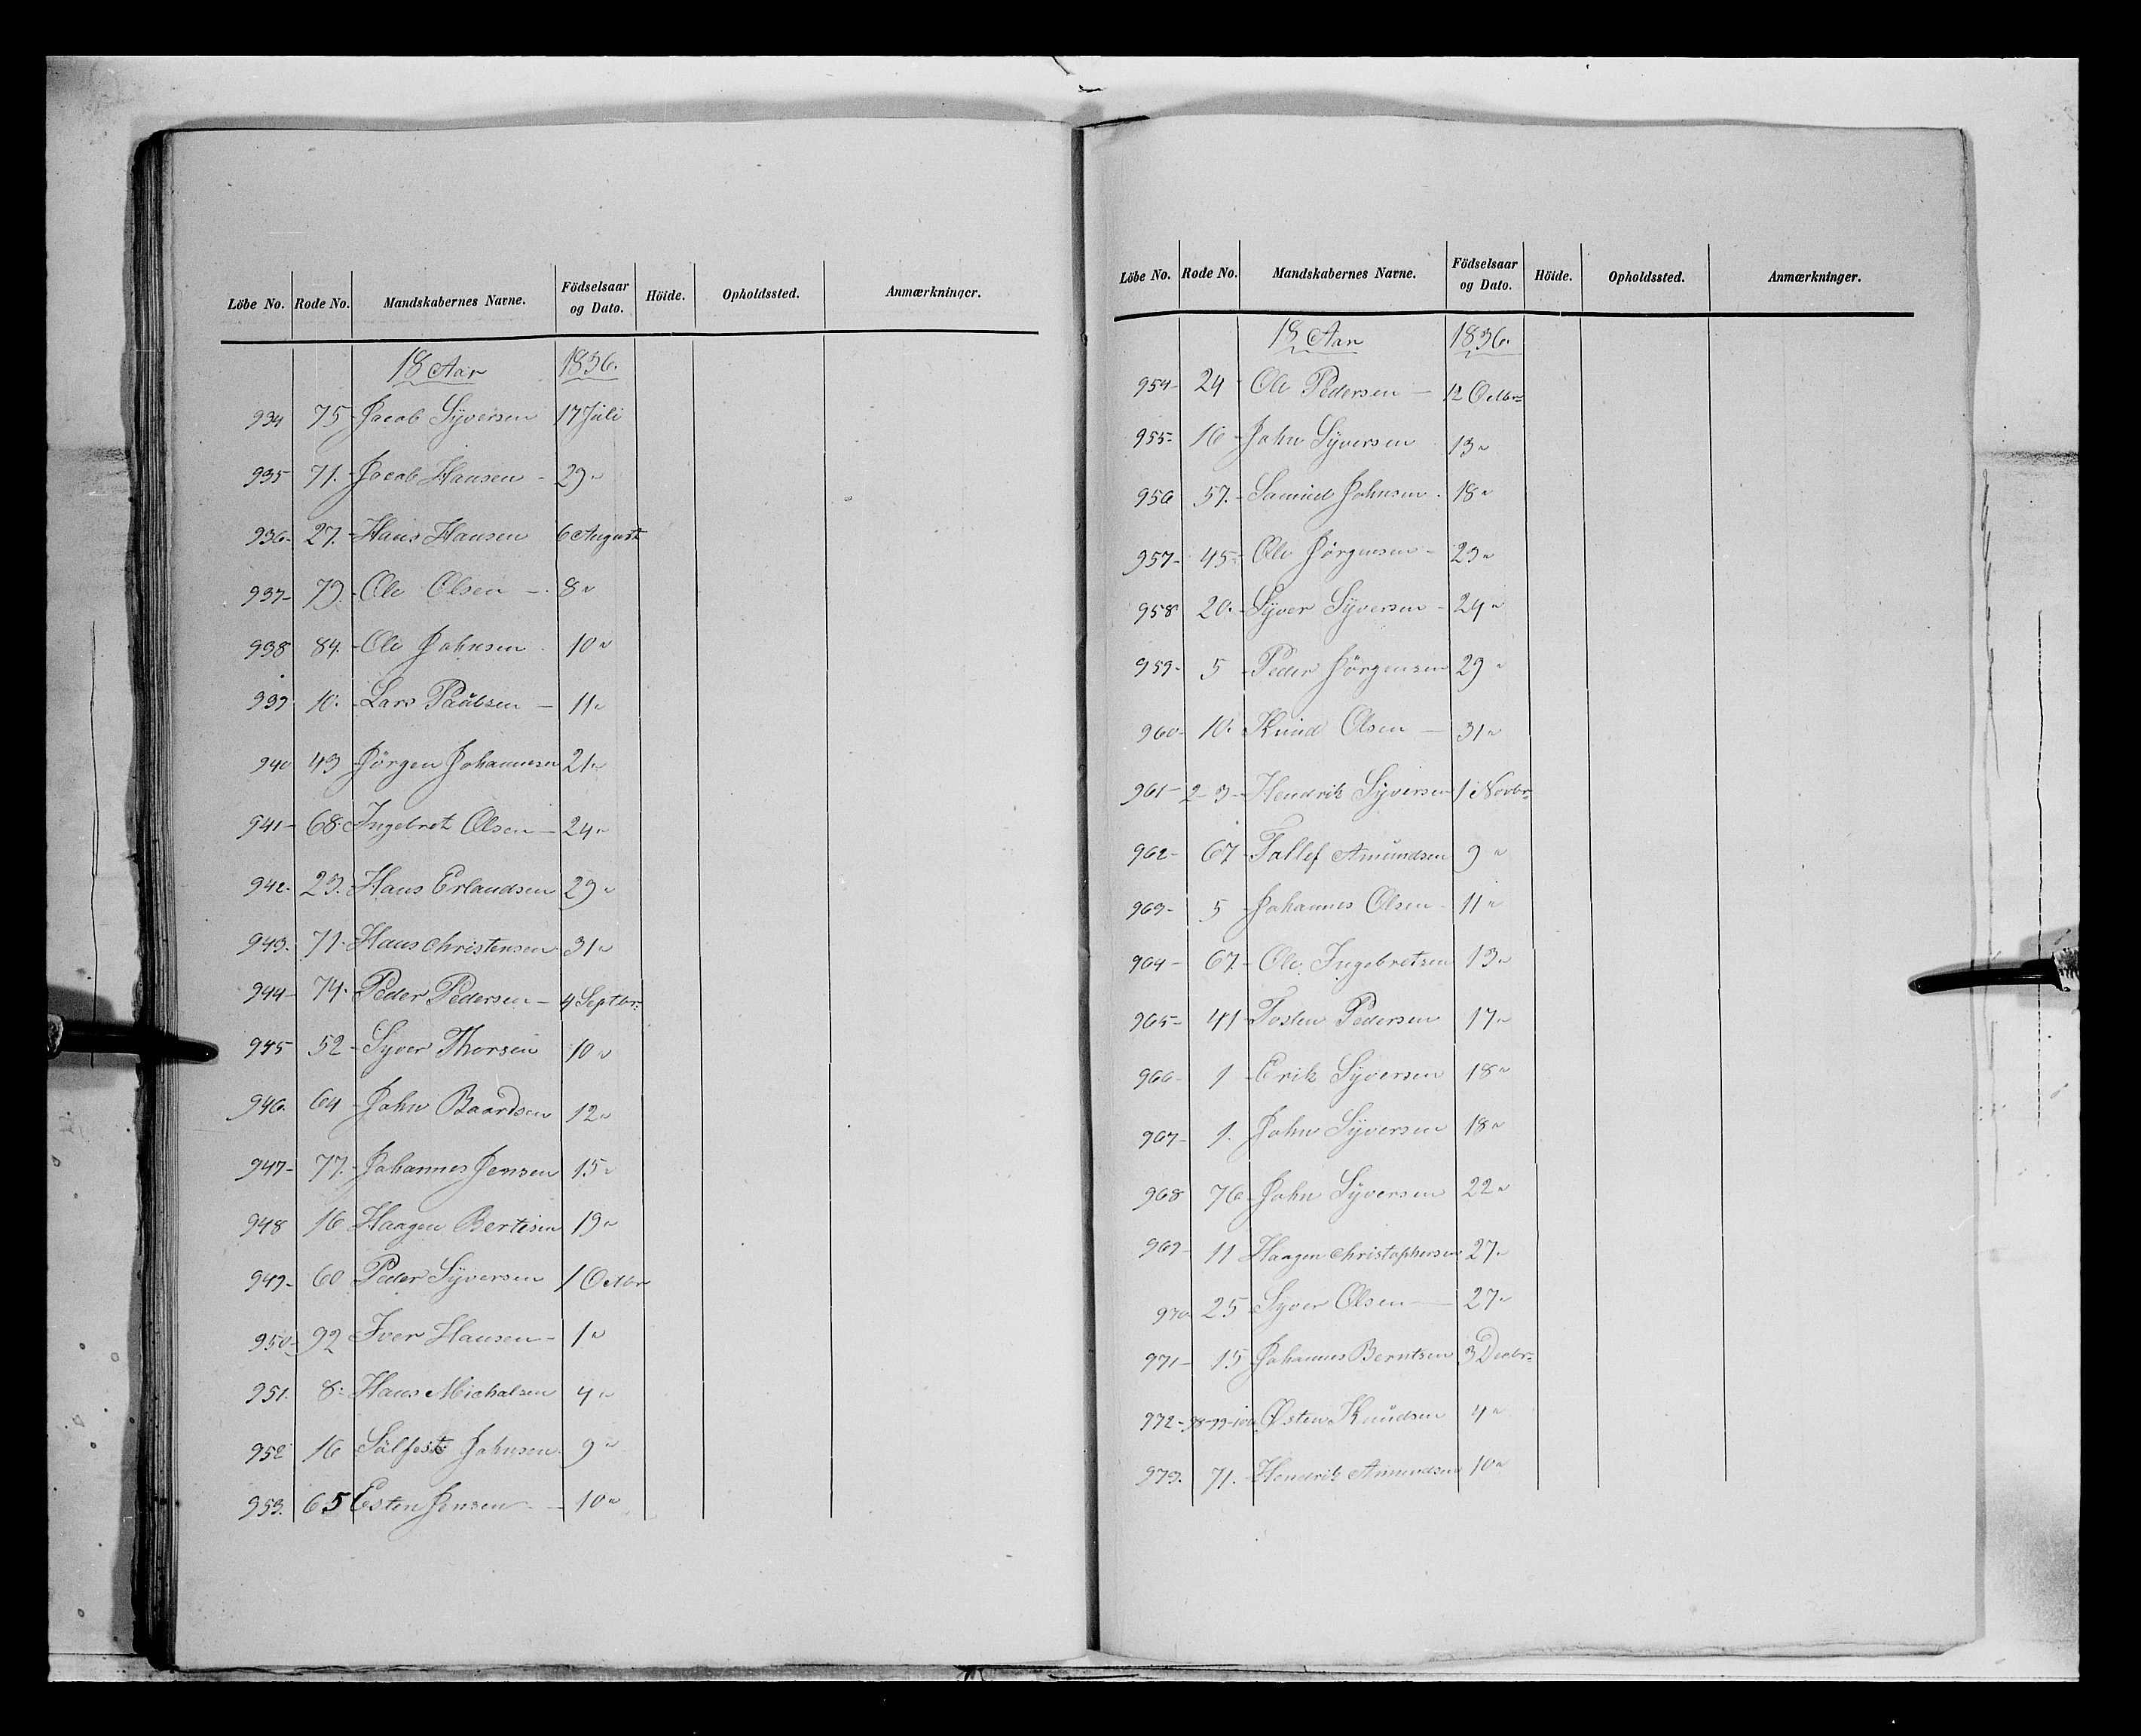 Löbe No. Rode No. Mandskabernes Navne. Födselsaar og Dato. Höide. Opholdssted. Anmærkninger.
18 Aar 1836.
934 75 Jacob Syversen 17 Juli
935 71. Jacob Hansen - 29 "
936- 27. Hans Hansen 6 August
937- 79. Ole Olsen - 8 "
938 84. Ole Johnsen 10 "
939 10. Lars Paulsen - 11 "
940 43 Jörgen Johannesen 21 "
941- 68. Ingebret Olsen - 24 "
942- 23. Hans Erlandsen 29 "
943. 71. Hans Christensen 31 "
944- 74. Peder Pedersen - 4 Septbr:
945 52 - Syver Thorsen 10 "
946. 64 - John Baardsen 12 "
947- 77. - Johannes Jensen 15 "
948 16 Haagen Bertisen 19 "
949- 60 Peder Syversen 1 Octbr
950- 92 Iver Hansen - 1 "
951. 8. Hans Michalsen 4 "
952 16 Sülfest Johnsen 9 "
953. 65 Esten Jensen - 10 "
Löbe No. Rode No. Mandskabernes Navne. Födselsaar og Dato. Höide. Opholdssted. Anmærkninger.
18 Aar 1836.
954- 24 Ole Pedersen - 12 Octbr=
955- 16 - John Syversen 13 "
956 57. - Samuel Johnsen 18 "
957- 45- Ole Jörgensen - 23 "
958 20. - Syver Syversen - 24 "
959- 5 - Peder Jörgensen 29 "
960- 10. Knud Olsen - 31 "
961- 2-3- Hendrik Syversen 1 Novbr=
962- 67 - Tallef Amundsen 9 "
963- 5 - Johannes Olsen 11 "
964- 67. - Ole Ingebretsen 13 "
965- 41 - Tosten Pedersen 17 "
966- 1 - Erik Syversen 18 "
967- 1. John Syversen 18 "
968 76 - John Syversen 22 "
969- 11 Haagen Christophersen 27 "
970 25 - Syver Olsen - 27 "
971- 15 Johannes Berntsen 3 Decbr=
972- 98-99-100 Østen Knudsen 4 "
973. 71. - Hendrik Amundsen 10 "